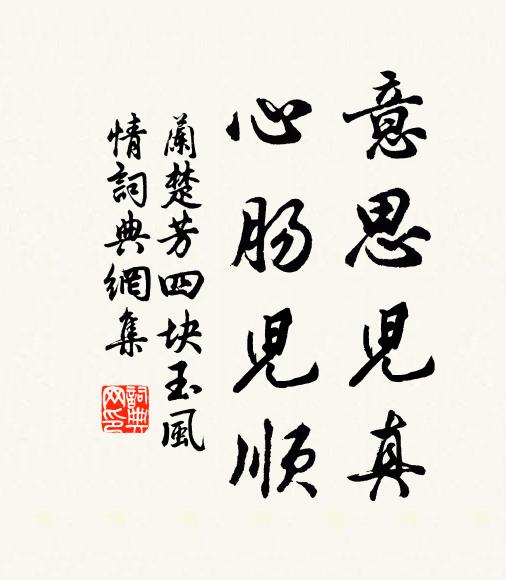 意思兒真
心肠兒順
蘭楚芳四块玉風
情詞典網集
詞典
网印